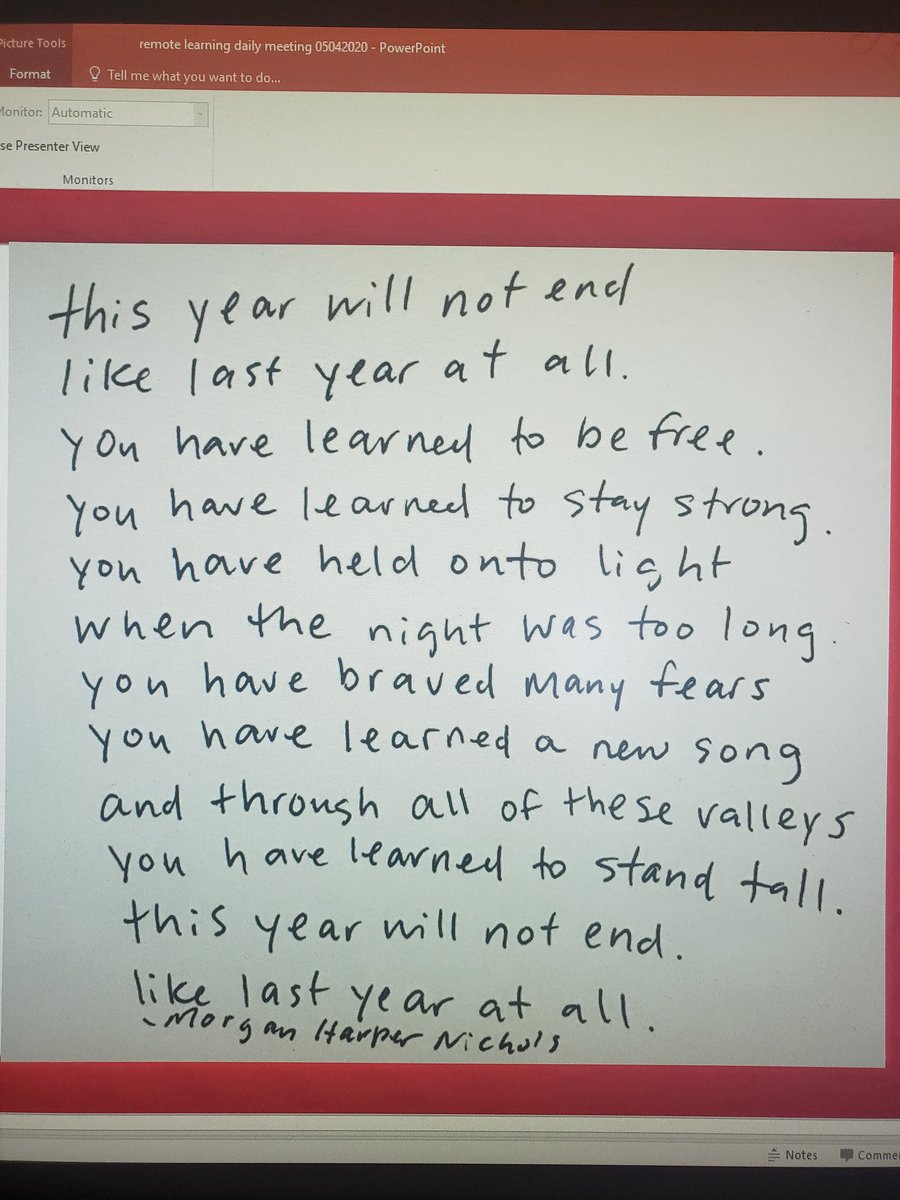 Picture Tools
remote learning daily meeting 05042020 - PowerPoint
Format
Tell me what you want to do...
Monitor: Automatic
se Presenter View
Monitors
this year will not end
like last year at all.
you have learned to be free.
you have learned to stay strong.
you have held onto light
when the night was too long.
you have braved many fears
you have learned a new song
and through all of these valleys
you have learned to stand tall.
this year will not end.
like last year at all.
- Morgan Harper Nichols
Notes
Comme